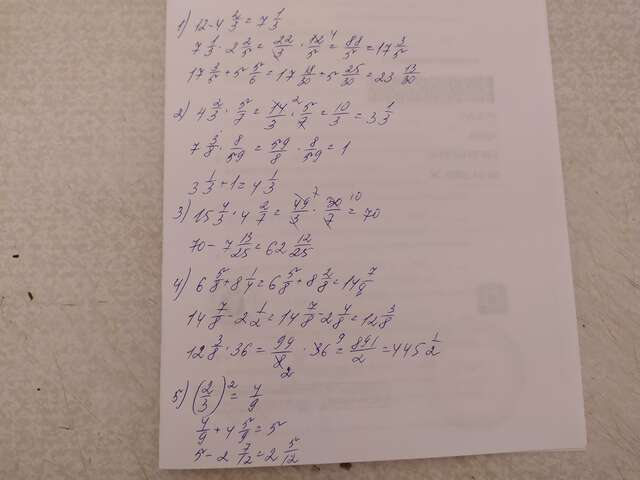 1) 12-4 2/3 = 7 1/3
7 1/3 · 2 2/5 = 22/3 · 12/5 4 = 88/5 = 17 3/5
17 3/5 + 5 5/6 = 17 18/30 + 5 25/30 = 23 13/30
2) 4 2/3 · 5/7 = 14/3 2 · 5/7 = 10/3 = 3 1/3
7 3/8 · 8/59 = 59/8 · 8/59 = 1
3 1/3 + 1 = 4 1/3
3) 15 4/3 · 4 2/7 = 49/3 7 · 30/7 10 = 70
70 - 7 13/25 = 62 12/25
4) 6 5/8 + 8 1/4 = 6 5/8 + 8 2/8 = 14 7/8
14 7/8 - 2 1/2 = 14 7/8 - 2 4/8 = 12 3/8
12 3/8 · 36 = 99/8 2 · 36 9 = 891/2 = 445 1/2
5) (2/3)² = 4/9
4/9 + 4 5/9 = 5
5 - 2 7/12 = 2 5/12